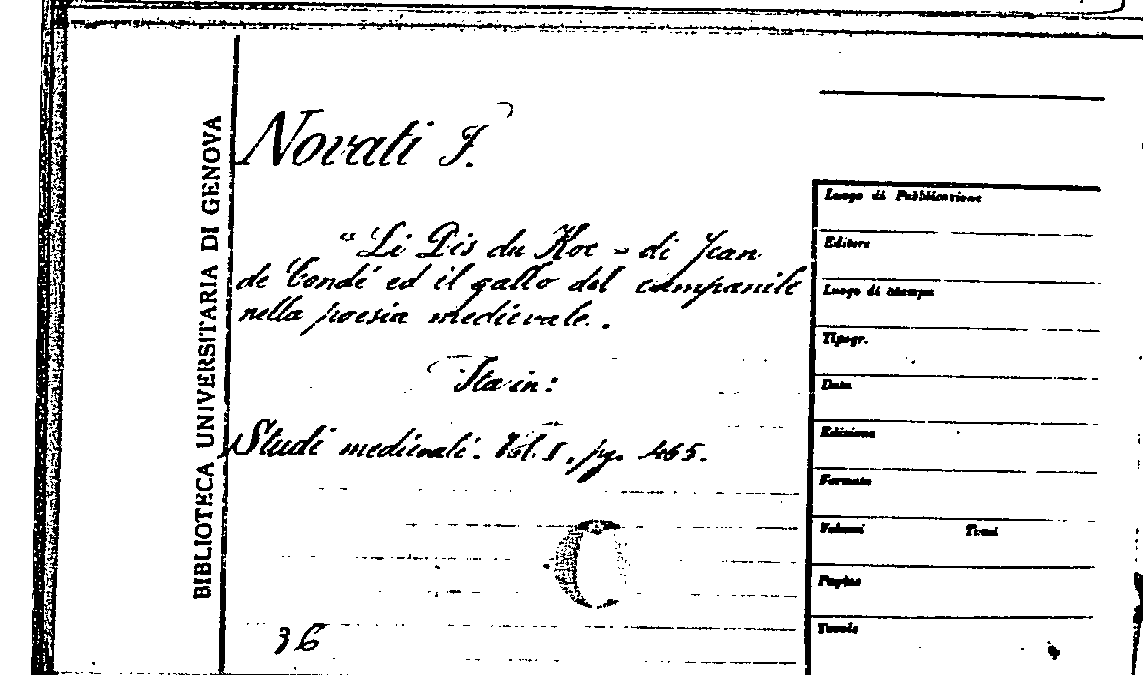 BIBLIOTECA UNIVERSITARIA DI GENOVA
Novati F.
"Li Dis du Koc - di Jean
de Condé ed il gallo del campanile
nella poesia medievale.
Sta in:
Studi medievali. Vol. I, pg. 465.
36
Luogo di Pubblicazione
Editore
Luogo di stampa
Tipogr.
Data
Edizione
Formato
Volumi Tomi
Pagine
Tavole